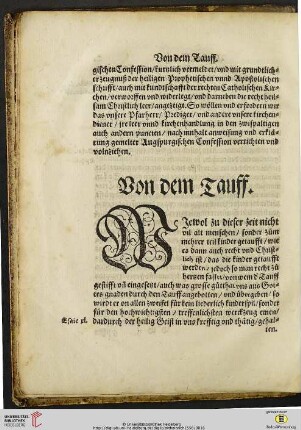 Von dem Tauff.
gischen Confession / kürtzlich vermeldet / vnd mit grundtlicher
erzeugnuß der heiligen Prophetischen vnnd Apostolischen
schrifft / auch mit kundtschafft der rechten Catholischen Kir-
chen / verworffen vnd widerlegt / vnd darneben die recht heil-
sam Christlich leer / angezeigt. So wöllen vnd erfordern wir
das vnsere Pfarherr / Prediger / vnd andere vnsere kirchen-
diener / jre leer vnnd kirchenhandlung in den zwispaltigen
auch andern puncten / nach innhalt anweisung vnd erklä-
rung gemelter Augspurgischen Confession verrichten vnd
volnziehen.
Von dem Tauff.
WJewol zu dieser zeit nicht
vil alt menschen / sonder züm
mehrer teil kinder getaufft / wie
es dann auch recht vnd Christ-
lich ist / das die kinder getaufft
werden / jedoch so man recht zů
hertzen fasset / von wem d' Tauff
gestifft vñ eingesetzt / auch was grosse gütthat vns auß Got-
tes gnaden durch den Tauff angebotten / vnd vbergeben / so
würdt er on allen zweifel für kein liederlich kinderspil / sonder
für den hochwichtigsten / treffenlichsten werckzeug emen /
dardurch der heilig Geist in vns krefftig vnd thätig / gehal-
Esaie xl.
ten.
UNIVERSITÄTS-
BIBLIOTHEK
HEIDELBERG
© Universitätsbibliothek Heidelberg